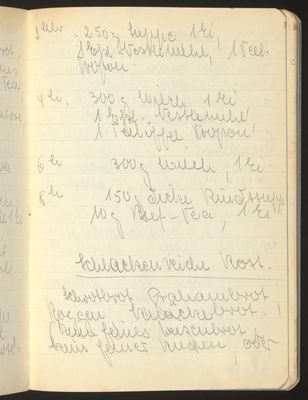 1 Uhr. 250g Suppe 1 Ei!
1 Eßl. Nestlemehl, 1 Teel.
Tropon.
4 h. 300g Milch 1 Ei
1 Eßl. Nestlemehl
1 Teelöffel Tropon!
6 h 300g Milch, 1 Ei
8 h 150g dicke Rindssuppe
10g Beef-Tea, 1 Ei
Schlackenreiche Kost.
Schrotbrot, Grahambrot
Roggen Schlackebrot. !
kein feines Weizenbrot
kein feines Kuchen, oder